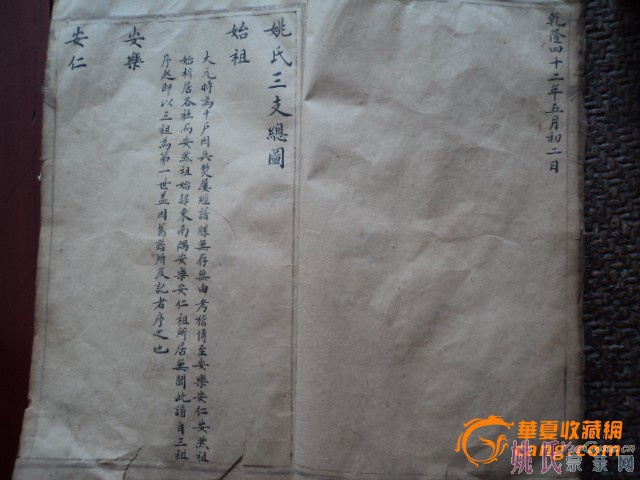 乾隆四十二年五月初二日
姚氏三支總圖
始祖
大元時爲千户因兵燹屡經譜牒無存無由考稽傳至安樂安仁安然祖
始析居各社而安然祖始歸東南隅安樂安仁祖所居無聞此譜自三祖
序起即以三祖為第一世盖因舊譜所及記者序之也
安樂
安仁
華夏收藏網
cang.com
姚氏宗亲网